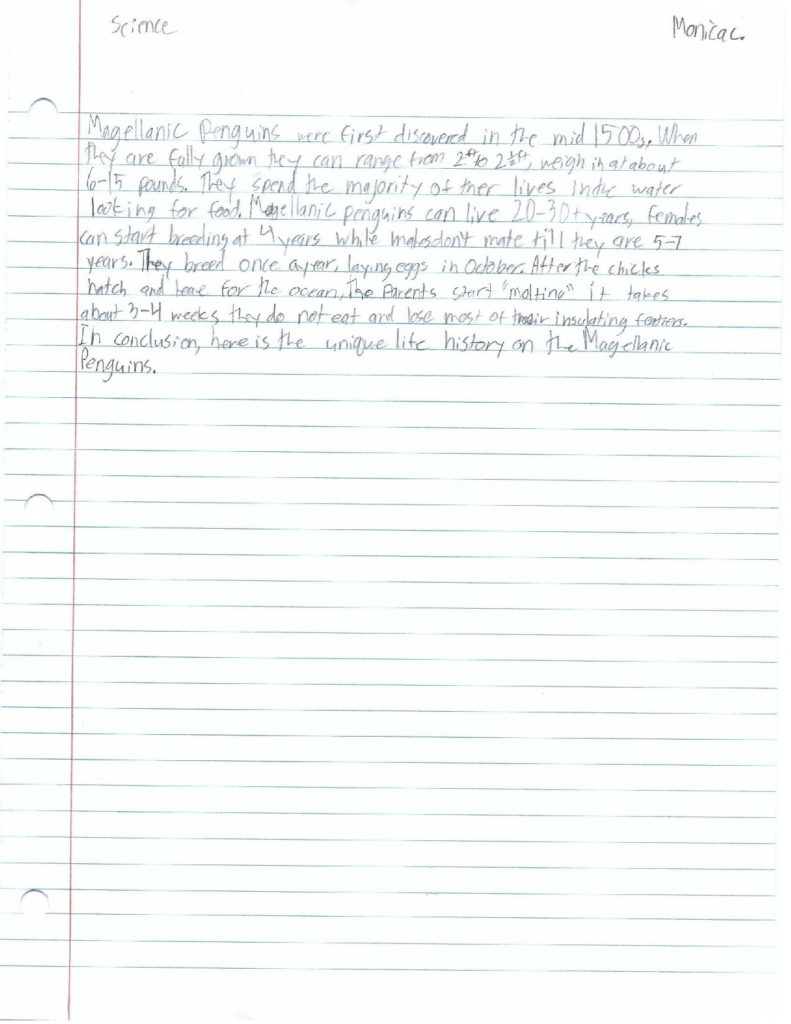 Science
Monica c.
Magellanic Penguins were first discovered in the mid 1500s. When
they are fully grown they can range from 2ft to 2½ft, weigh in at about
6-15 pounds. They spend the majority of ther lives in the water
looking for food. Magellanic penguins can live 20-30+ years, females
can start breeding at 4 years while males don't mate till they are 5-7
years. They breed once a year, laying eggs in October. After the chicks
hatch and leave for the ocean, the parents start "molting" it takes
about 3-4 weeks they do not eat and lose most of their insulating feathers.
In conclusion, here is the unique life history on the Magellanic
Penguins.